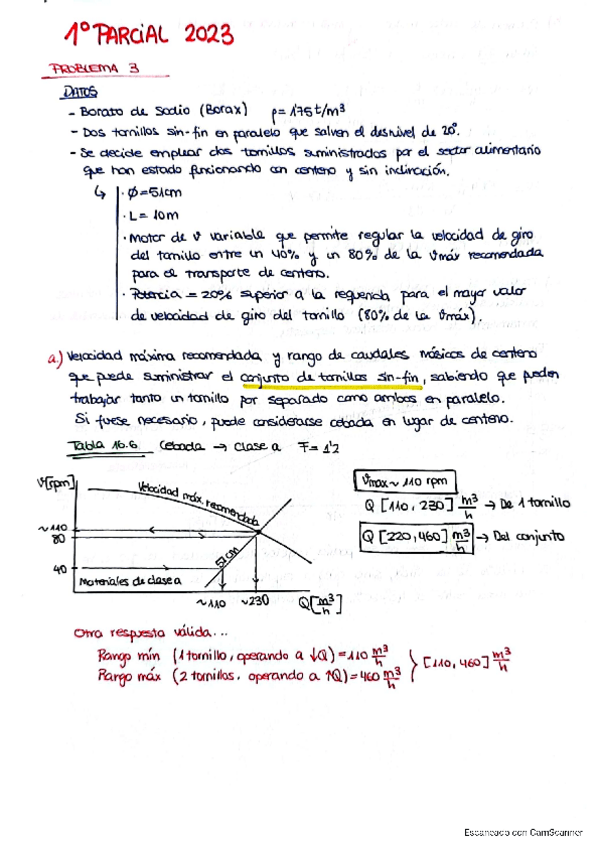 1º PARCIAL 2023
PROBLEMA 3
DATOS
- Borato de Sodio (Borax) ρ=1'75 t/m³
- Dos tornillos sin-fin en paralelo que salven el desnivel de 20º.
- Se decide emplear dos tornillos suministrados por el sector alimentario
que han estado funcionando con centeno y sin inclinación.
↳ · Ø=51cm
· L= 10m
· Motor de v variable que permite regular la velocidad de giro
del tornillo entre un 40% y un 80% de la vmáx recomendada
para el transporte de centeno.
· Potencia = 20% superior a la requerida para el mayor valor
de velocidad de giro del tornillo (80% de la vmáx).
a) Velocidad máxima recomendada y rango de caudales másicos de centeno
que puede suministrar el conjunto de tornillos sin-fin, sabiendo que pueden
trabajar tanto un tornillo por separado como ambos en paralelo.
Si fuese necesario, puede considerarse cebada en lugar de centeno.
Tabla 16.6 Cebada → Clase a F=1'2
V[rpm]
Velocidad máx. recomendada
~110
80
40
51cm
Materiales de clase a
~110 ~230 Q[m³/h]
Vmax ~ 110 rpm
Q [110, 230] m³/h → De 1 tornillo
Q [220, 460] m³/h → Del conjunto
Otra respuesta válida...
Rango mín (1 tornillo, operando a ↓Q) = 110 m³/h
Rango máx (2 tornillos, operando a ↑Q) = 460 m³/h } [110, 460] m³/h
Escaneado con CamScanner